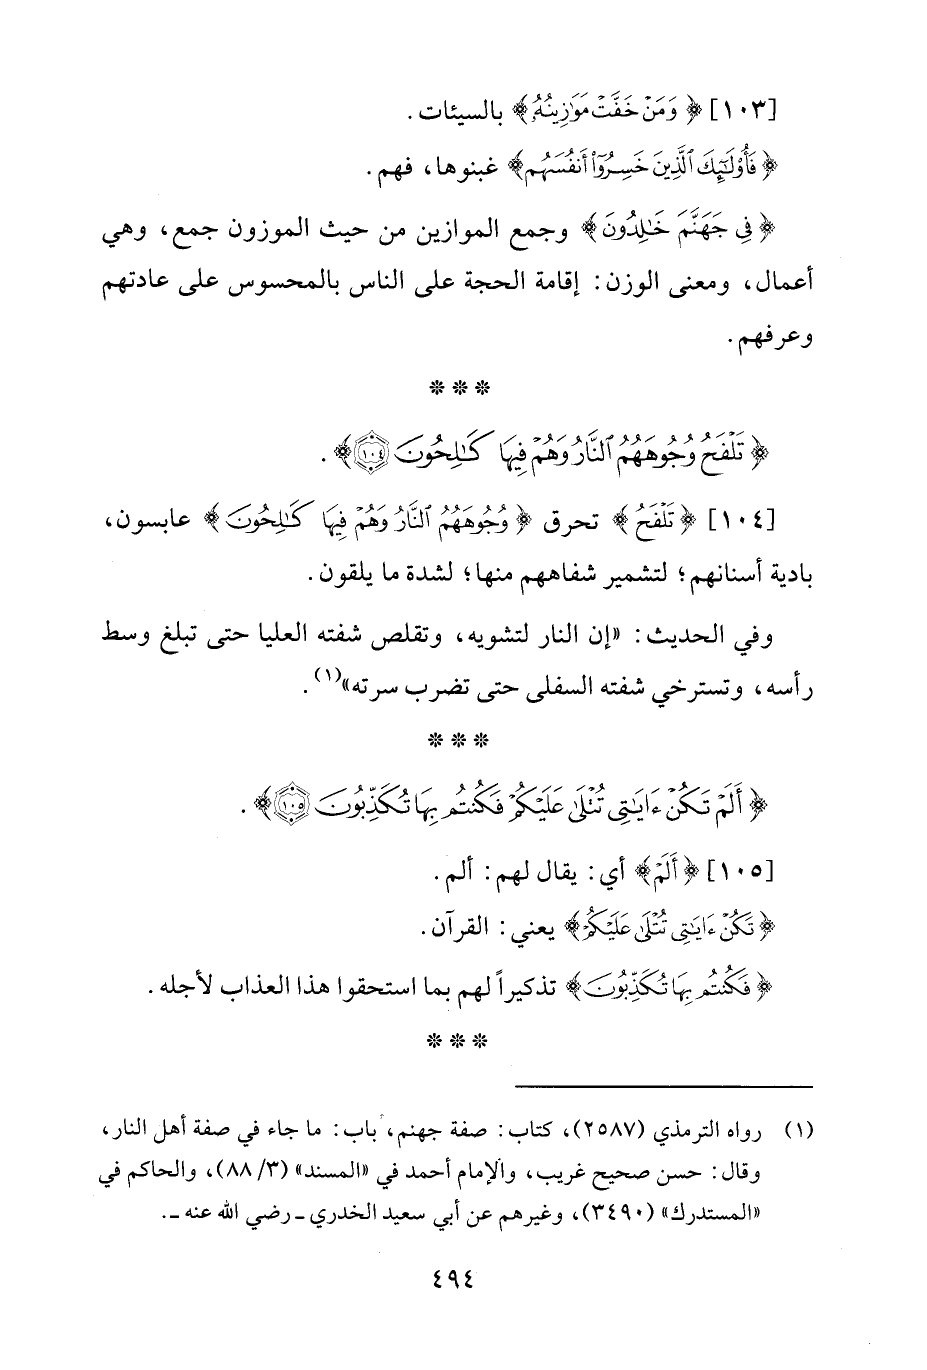 [١٠٣] ﴿وَمَنْ خَفَّتْ مَوَٰزِينُهُۥ﴾ بالسيئات.
﴿فَأُوْلَٰٓئِكَ ٱلَّذِينَ خَسِرُوٓاْ أَنفُسَهُمْ﴾ غبنوها، فهم.
﴿فِي جَهَنَّمَ خَٰلِدُونَ﴾ وجمع الموازين من حيث الموزون جمع، وهي
أعمال، ومعنى الوزن: إقامة الحجة على الناس بالمحسوس على عادتهم
وعرفهم.
* * *
﴿تَلْفَحُ وُجُوهَهُمُ ٱلنَّارُ وَهُمْ فِيهَا كَٰلِحُونَ ١٠٤﴾.
[١٠٤] ﴿تَلْفَحُ﴾ تحرق ﴿وُجُوهَهُمُ ٱلنَّارُ وَهُمْ فِيهَا كَٰلِحُونَ﴾ عابسون،
بادية أسنانهم؛ لتشمير شفاههم منها؛ لشدة ما يلقون.
وفي الحديث: «إن النار لتشويه، وتقلص شفته العليا حتى تبلغ وسط
رأسه، وتسترخي شفته السفلى حتى تضرب سرته»(١).
* * *
﴿أَلَمْ تَكُنْ ءَايَٰتِي تُتْلَىٰ عَلَيْكُمْ فَكُنتُم بِهَا تُكَذِّبُونَ ١٠٥﴾.
[١٠٥] ﴿أَلَمْ﴾ أي: يقال لهم: ألم.
﴿تَكُنْ ءَايَٰتِي تُتْلَىٰ عَلَيْكُمْ﴾ يعني: القرآن.
﴿فَكُنتُم بِهَا تُكَذِّبُونَ﴾ تذكيراً لهم بما استحقوا هذا العذاب لأجله.
* * *
(١) رواه الترمذي (٢٥٨٧)، كتاب: صفة جهنم، باب: ما جاء في صفة أهل النار،
وقال: حسن صحيح غريب، والإمام أحمد في «المسند» (٣/ ٨٨)، والحاكم في
«المستدرك» (٣٤٩٠)، وغيرهم عن أبي سعيد الخدري ـ رضي الله عنه ـ.
٤٩٤